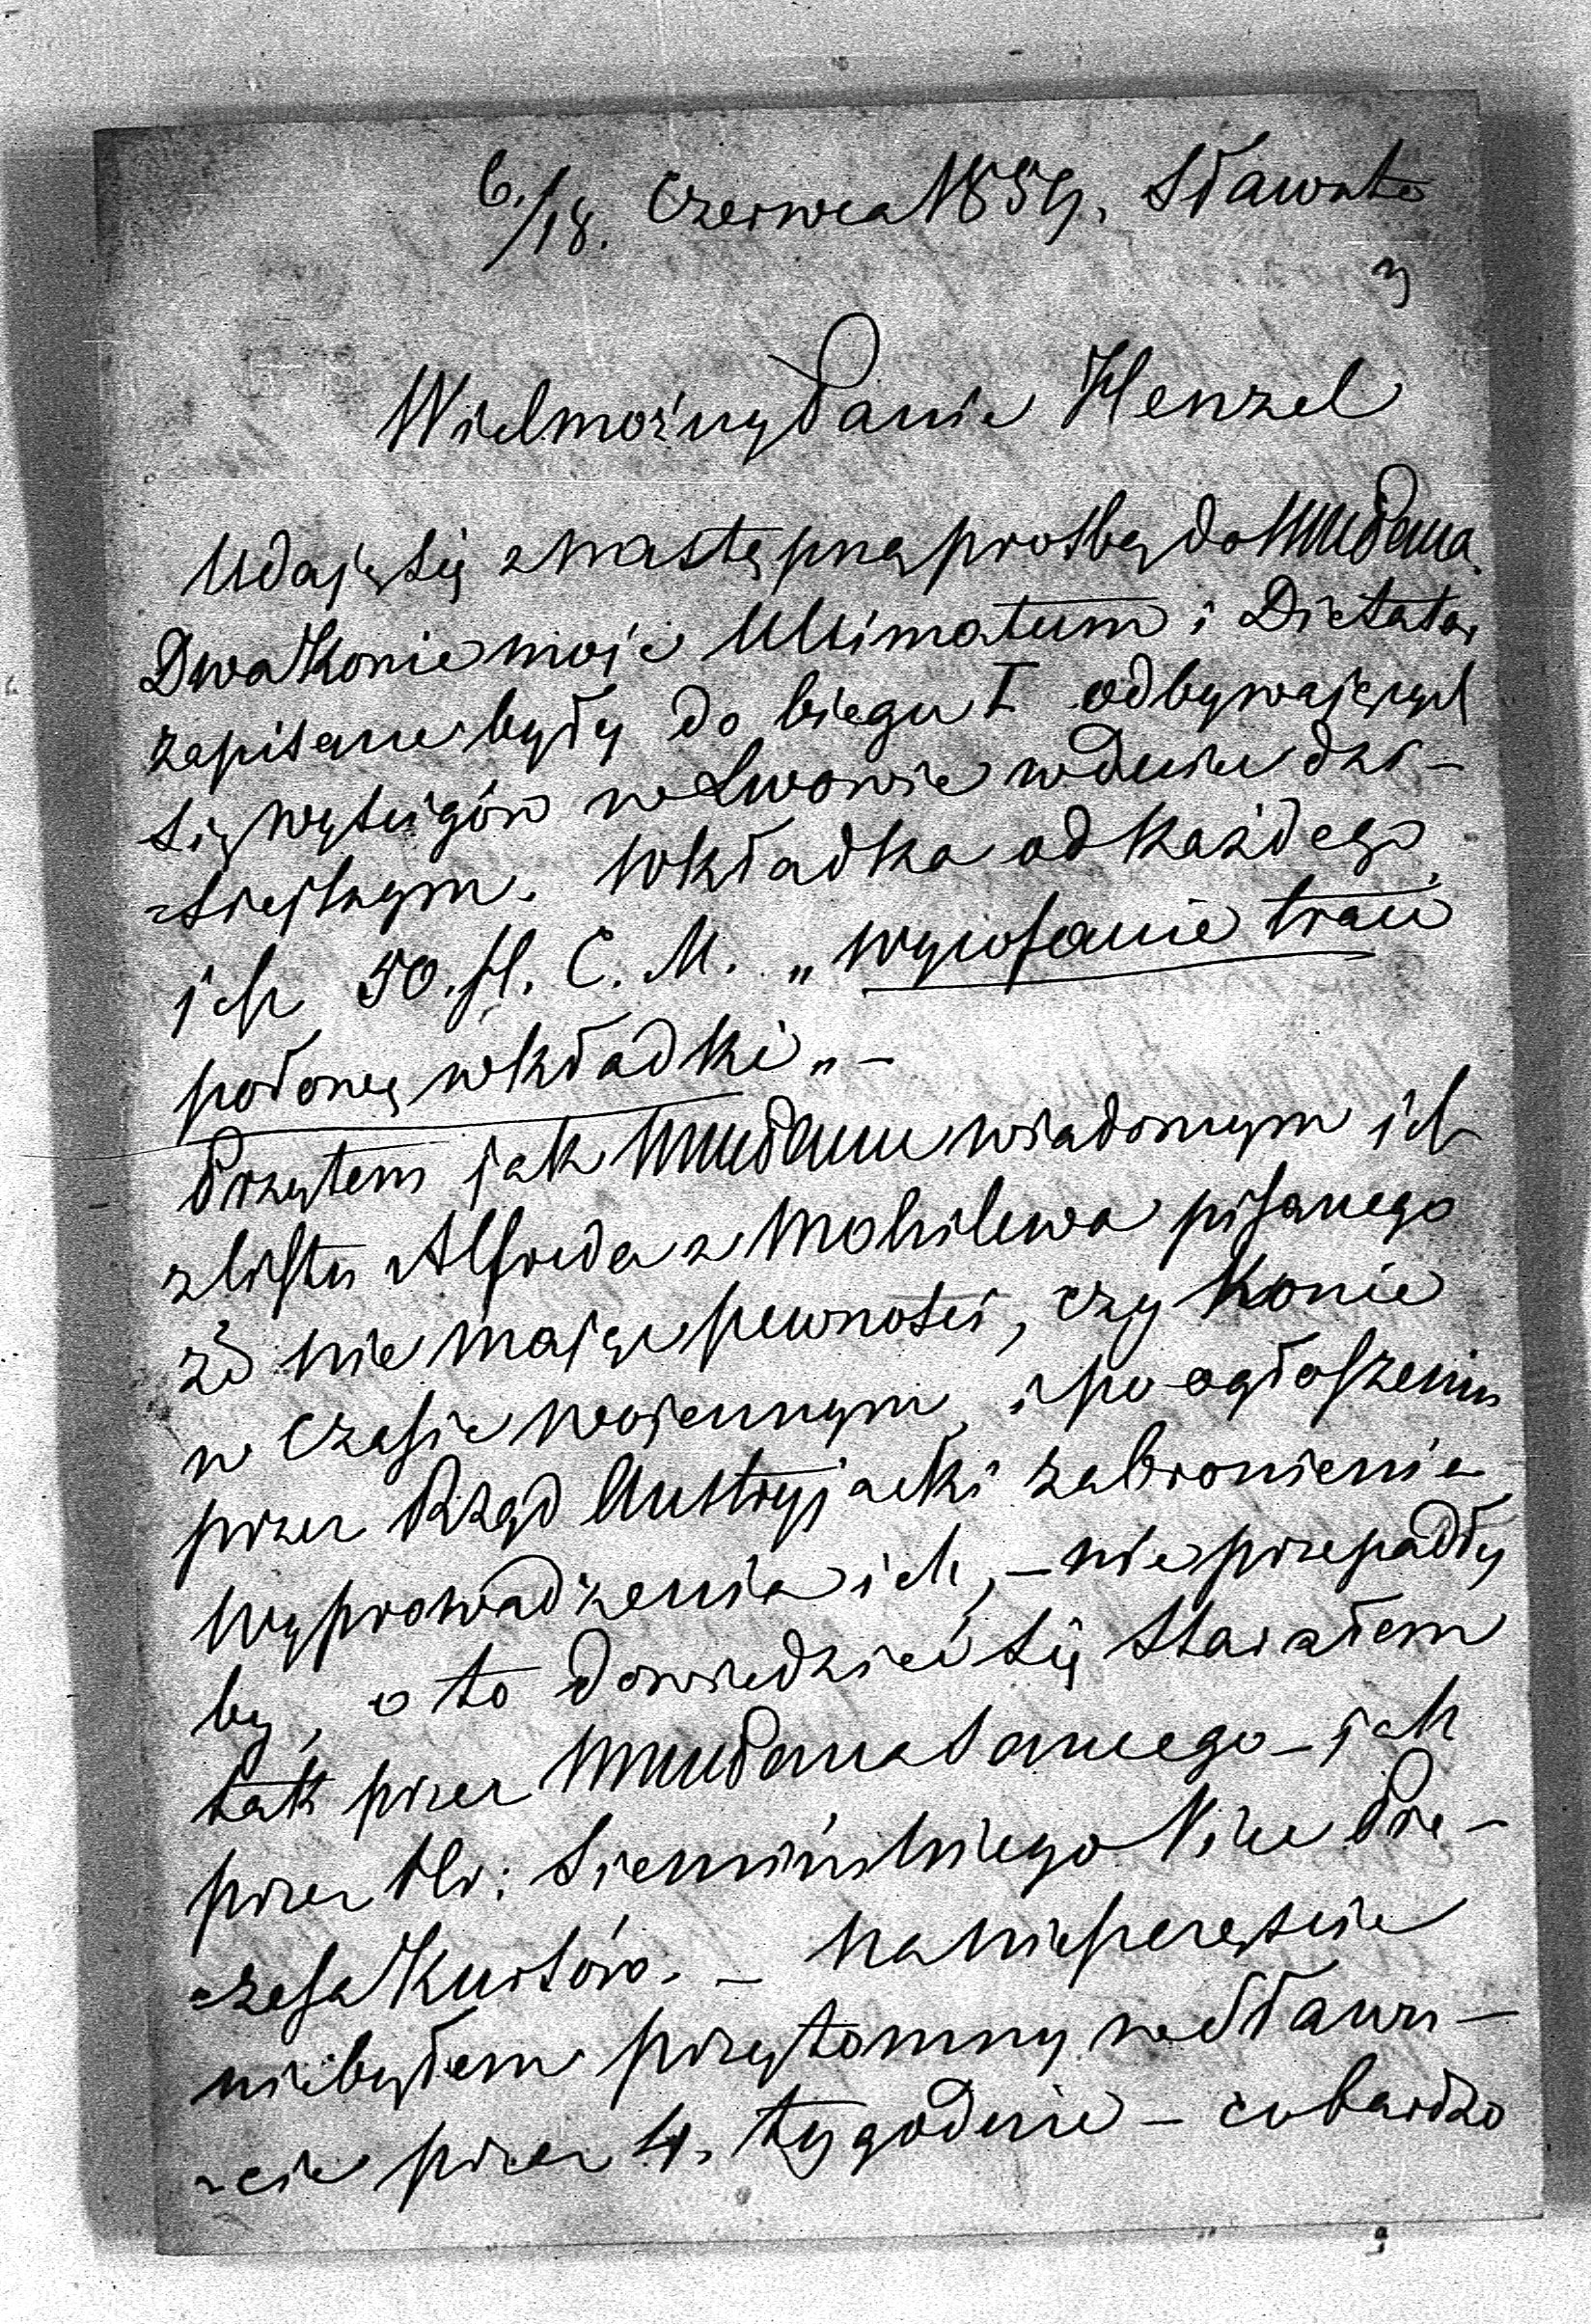 6./18. Czerwca 1859. Sławuta
Wielmożny Panie Henzel
Udaję się z następną prosbą do WWPana.
Dwa Konie moje Ultimatum i Dictator
zapisane były do biegu I odbywających
się wyścigów w Lwowie w dniu dzi-
siejszym. Wkładka od każdego
ich 50. fl. C. M. „Wycofanie traci
połowę wkładki„ –
Przytem jak WWPanu wiadomym
z listu Alfreda z Mohilewa pisanego
że nie mając pewności, czy Konie
w czasie wojennym, i po ogłoszeniu
przez Rząd Austryjacki zabronienia
wyprowadzenia ich, – nie przepadły
by, o to dowiedzieć się starałem
tak przez WWPana samego – jak
przez Hr: Siemińskiego Vice Pre-
zesa Kursów. – Na nieszczęście
nie byłem przytomny w Sławu-
cie przez 4. tygodnie – co bardzo